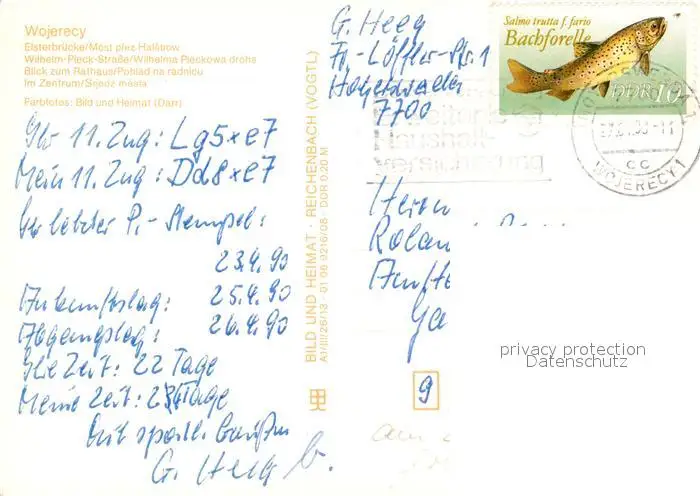 Wojerecy
Elsterbrücke/Móst přez Halštrow
Wilhelm-Pieck-Straße/Wilhelma Pieckowa droha
Blick zum Rathaus/Pohlad na radnicu
Im Zentrum/Srjedź města
Farbfotos: Bild und Heimat (Darr)
Ihr 11. Zug: Lg5xe7
Mein 11. Zug: Dd8xe7
Ihr letzter P.-Stempel:
23.4.90
Ankunftstag: 25.4.90
Abgangstag: 26.4.90
Ihre Zeit: 22 Tage
Meine Zeit: Tage
Mit sportl. Grüßen
G. Heeg
BILD UND HEIMAT · REICHENBACH (VOGTL)
A1/III/26/13 · 01 06 0216/08 · DDR 0,20 M
G. Heeg
Fr.-Löffler-Str. 1
Hoyerswerda
7700
Salmo trutta f. fario
Bachforelle
DDR 10
Haushalt-
versicherung
cc
WOJERECY 1
Herrn
9
privacy protection
Datenschutz